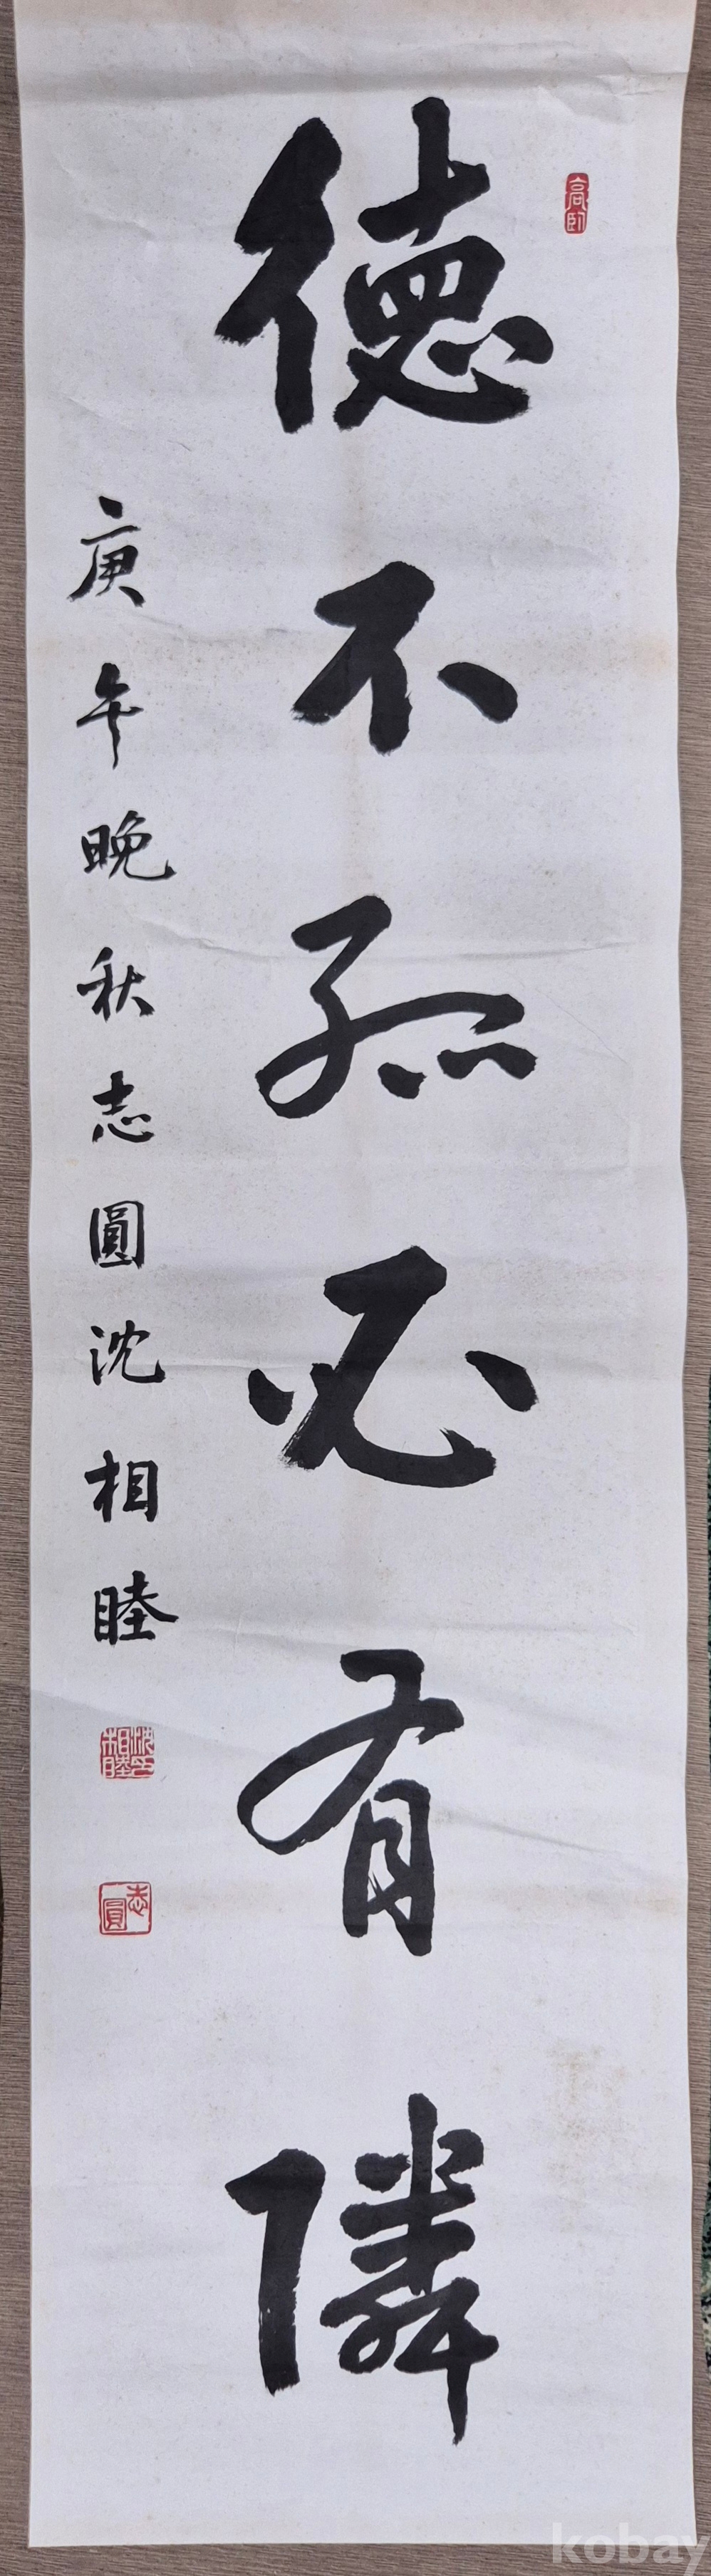 德不孤必有隣
庚午晚秋志圓沈相睦
高臥
沈相睦印
志圓
kobay